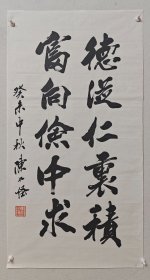 德從仁裏積
富向儉中求
癸未中秋陳